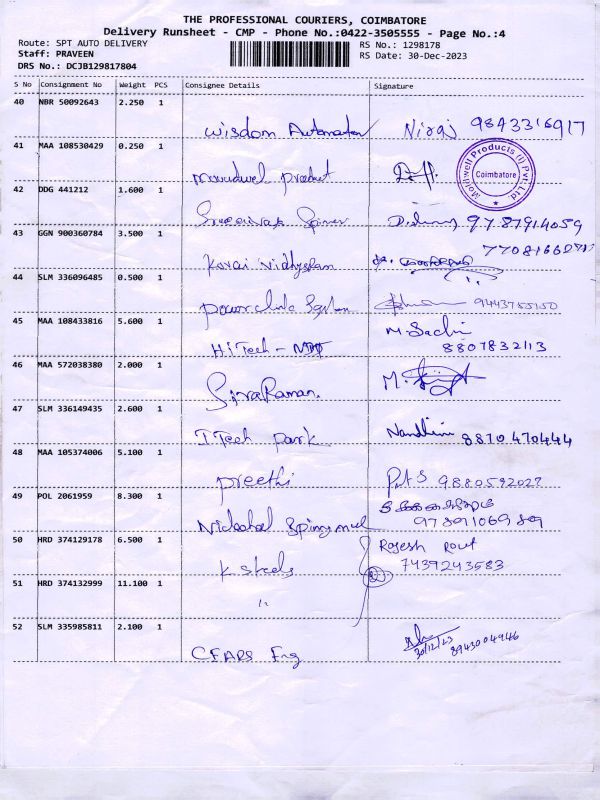 THE PROFESSIONAL COURIERS, COIMBATORE
Delivery Runsheet - CMP - Phone No.:0422-3505555 - Page No.:4
Route: SPT AUTO DELIVERY
RS No.: 1298178
Staff: PRAVEEN
RS Date: 30-Dec-2023
DRS No.: DCJB129817804
S No Consignment No Weight PCS Consignee Details Signature
40 NBR 50092643 2.250 1
Wisdom Automation Niraj 9843316917
41 MAA 108530429 0.250 1
product
Modiwell Products (I) Pvt. Ltd.
Coimbatore
42 DDG 441212 1.600 1
9787914059
43 GGN 900360784 3.500 1
Kovai Vidhyalam
44 SLM 336096485 0.500 1
System
45 MAA 108433816 5.600 1
HiTech - M. Sachin
8807832113
46 MAA 572038380 2.000 1
SivaRaman. M.
47 SLM 336149435 2.600 1
I Tech park Nandhini 8870470444
48 MAA 105374006 5.100 1
preethi 9880592027
49 POL 2061959 8.300 1
50 HRD 374129178 6.500 1
K steels Rajesh Rout
7439243583
51 HRD 374132999 11.100 1
"
52 SLM 335985811 2.100 1
CFARS Eng 30/12/23 8943004946